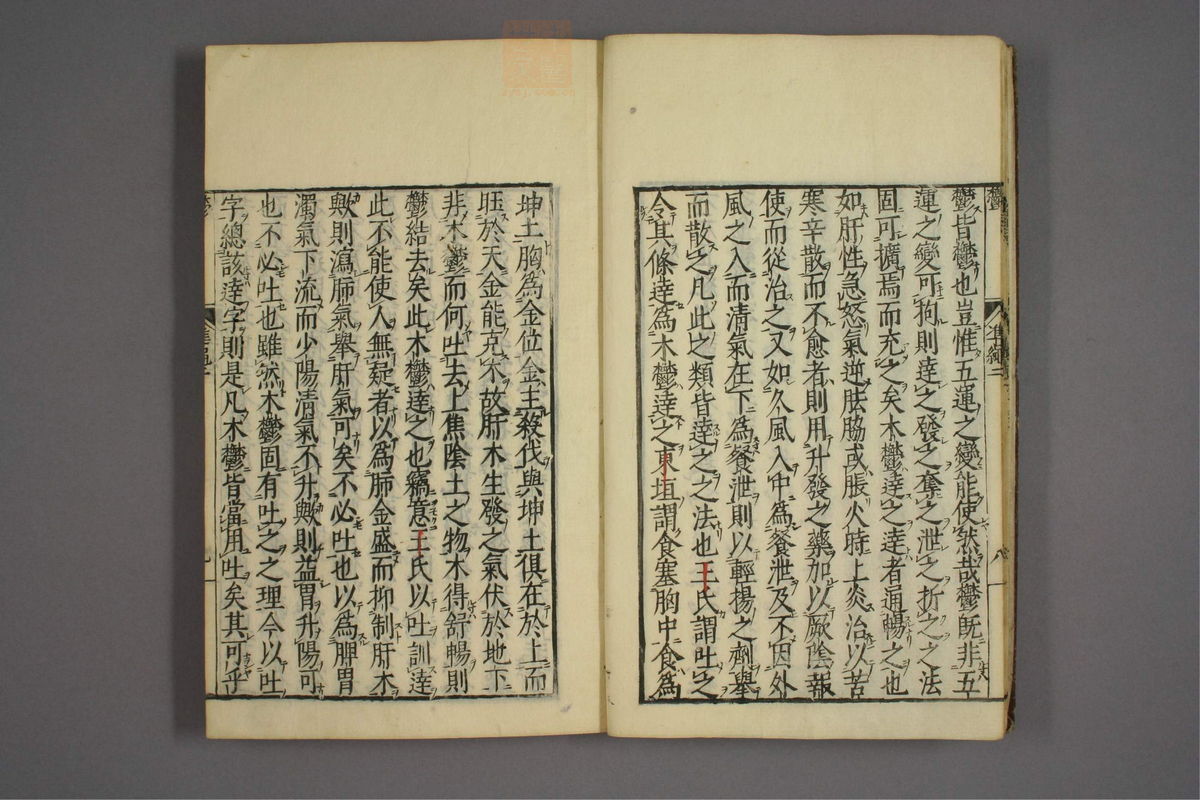 鬱皆鬱也豈惟五運之變能使然哉鬱既非五
運之變可狥則達之發之奪之泄之折之之法
固可擴焉而充之矣木鬱達之達者通暢之也
如肝性急怒氣逆胠脇或脹火時上炎治以苦
寒辛散而不愈者則用升發之藥加以厥陰報
使而從治之又如久風入中爲飧泄及不因外
風之入而清氣在下爲飧泄則以輕揚之劑舉
而散之凡此之類皆達之之法也王氏謂吐之
令其條達爲木鬱達之東垣謂食塞胸中食爲
坤土胸爲金位金主殺伐與坤土俱在於上而
旺於天金能克木故肝木生發之氣伏於地下
非木鬱而何吐去上焦陰土之物木得舒暢則
鬱結去矣此木鬱達之也竊意王氏以吐訓達
此不能使人無疑者以爲肺金盛而抑制肝木
歟則瀉肺氣舉肝氣可矣不必吐也以爲脾胃
濁氣下流而少陽清氣不升歟則益胃升陽可
也不必吐也雖然木鬱固有吐之之理今以吐
字總該達字則是凡木鬱皆當用吐矣其可乎